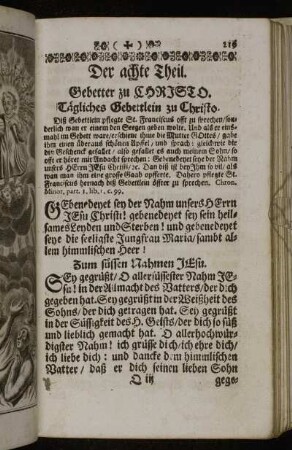 ( ✠ ) 215
Der achte Theil.
Gebetter zu CHRISTO.
Tägliches Gebettlein zu Christo.
Diß Gebettlein pflegte St. Franciscus offt zu sprechen/ son-
derlich wan er einem den Seegen geben wolte. Und als er eins-
mahl im Gebett ware/ erschiene ihme die Mutter GOttes/ gabe
ihm einen überauß schönen Apfel/ und sprach: gleichwie dir
der Geschenck gefallet/ also gefallet es auch meinem Sohn/ so
offt er höret mit Andacht sprechen: Gebenedeyet seye der Nahm
unsers HErrn JEsu Christi/ &c. Dan diß ist bey Ihm so vil/ als
wan man ihm eine grosse Gaab opfferte. Dahero pflegte St.
Franciscus hernach diß Gebettlein öffter zu sprechen. Chron.
Minor. part. 1. lib. 1. c. 99.
GEbenedeyet sey der Nahm unsers HErrn
JEsu Christi! gebenedeyet sey sein heyl-
sames Leyden und Sterben! und gebenedeyet
seye die seeligste Jungfrau Maria/ sambt al-
lem himmlischen Heer!
Zum süssen Nahmen JEsu.
SEy gegrüßt/ O aller süssester Nahm JE-
su! in der Allmacht des Vatters/ der dich
gegeben hat. Sey gegrüßt in der Weißheit des
Sohns/ der dich getragen hat. Sey gegrüßt
in der Süssigkeit des H. Geists/ der dich so süß
und lieblich gemacht hat. O allerhochwür-
digster Nahm! ich grüsse dich/ ich ehre dich/
ich liebe dich: und dancke dem himmlischen
Vatter/ daß er dich seinen lieben Sohn
O iij gege-